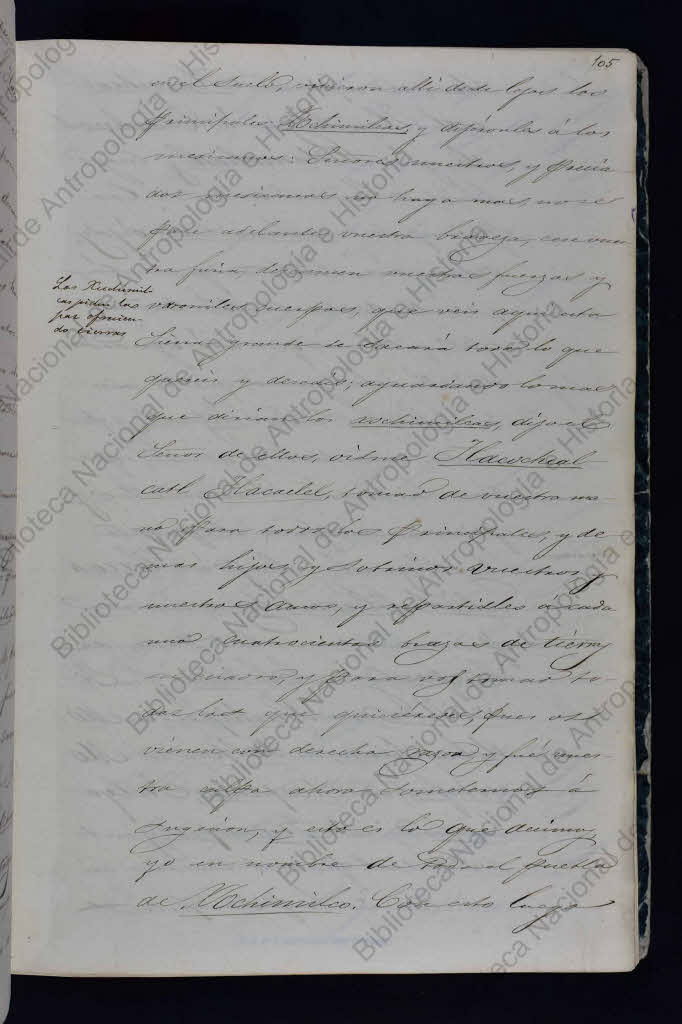 105
en el suelo, vinieron alli desde lejos los
Principales Xochimilcas, y dijeronles á los
mexicanos: Señores nuestros, y precia
dos mexicanos no haya mas, no se
pase adelante vuestra braveza, con vues
tra furia, descansen vuestras fuerzas y
varoniles cuerpos, que veis aqui esta
Sierra grande se sacará todo lo que
quereis y deseais; aguardando lo mas
que dirian los xochimilcas, dijo el
Señor de ellos, oidme Tlacochcal
catl Tlacaelel, tomad de vuestra ma
no para todos los Principales, y de
mas hijos y sobrinos vuestros y
nuestros amos, y repartidles á cada
uno cuatrocientas brazas de tierra
y para vos tomad to-
das las que quisiéredes, pues os
vienen con derecha razon y fué nues
tra culpa ahora sometemos á
y esto es lo que decimos,
yo en nombre de todo el pueblo
de Xochimilco. Con esto luego
Los Xuchimil
cas piden la
paz ofrecien
do tierras
Biblioteca Nacional de Antropología e Historia